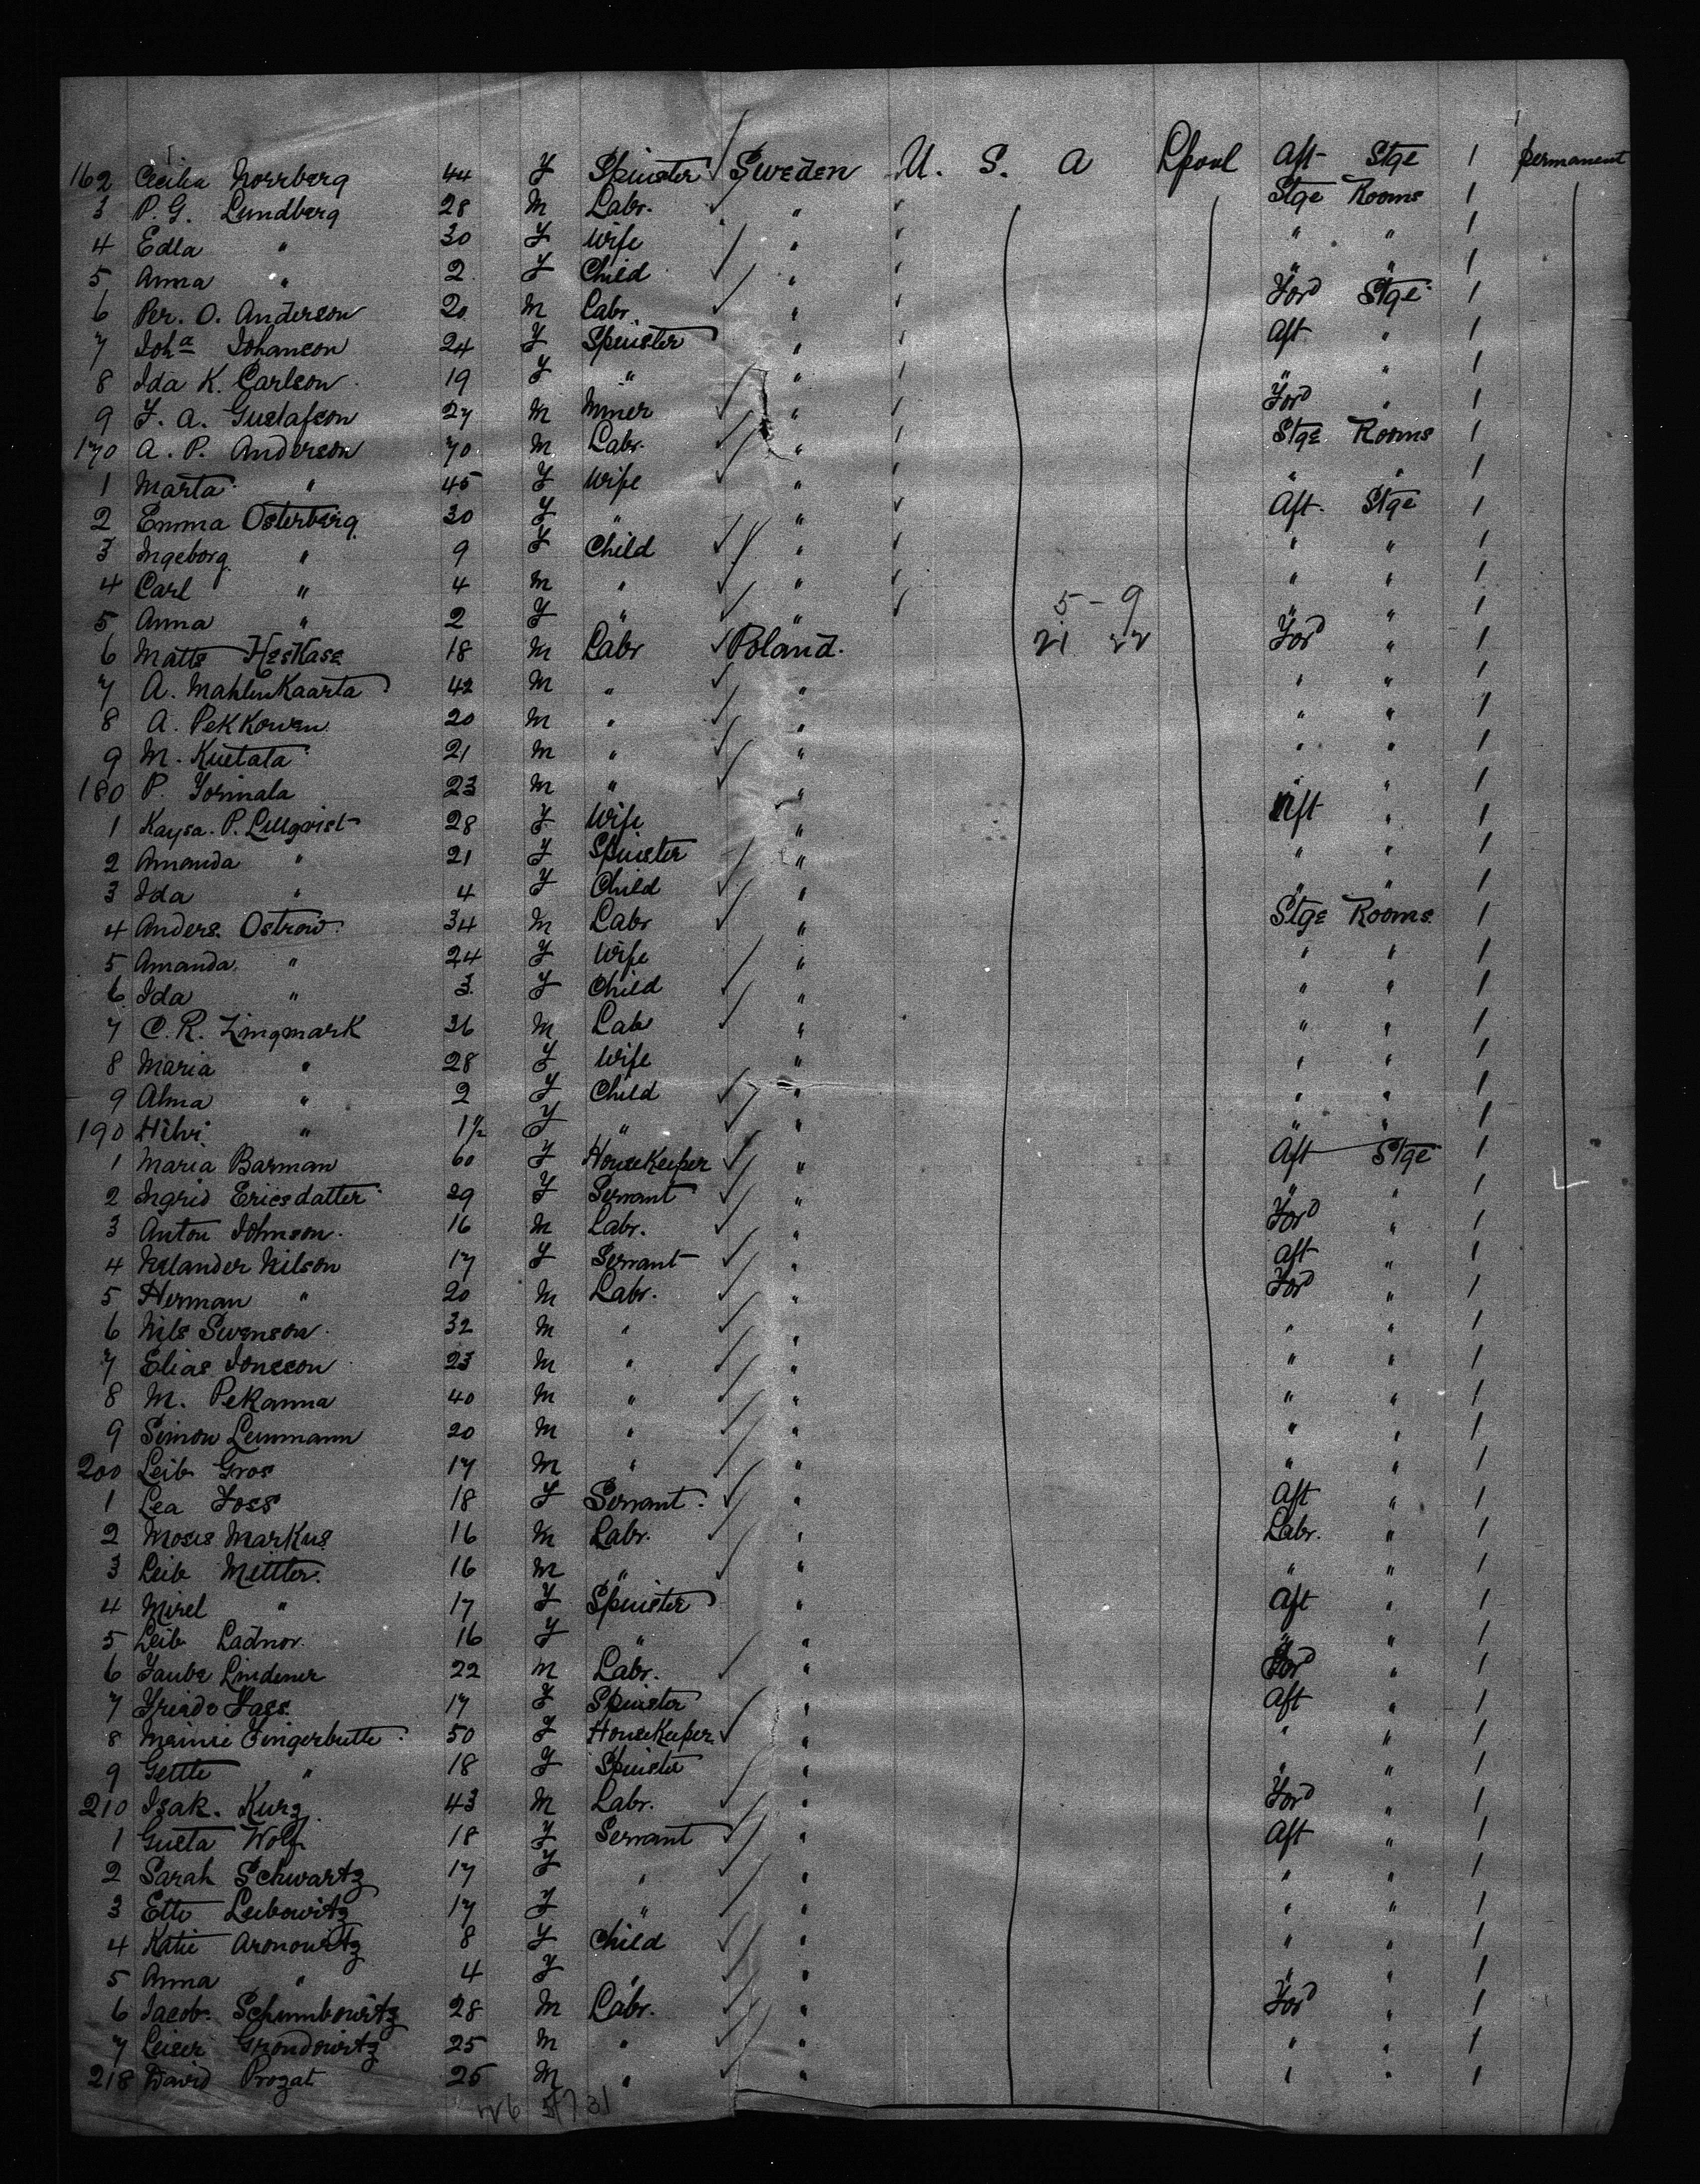 162 Cecilia Norrberg 44 F Spinster Sweden U. S. A Lpool Aft Stge 1 permanent
3 P. G. Lundberg 28 M Labr. " Stge Rooms 1
4 Edla " 30 F Wife " " " 1
5 Anna " 2 F Child " " " 1
6 Per. O. Anderson 20 M Labr. " Ford Stge 1
7 Joha Johanson 24 F Spinster " Aft " 1
8 Ida K. Carlson 19 F " " " " 1
9 F. A. Gustafson 27 M Miner " Ford " 1
170 A. P. Anderson 70 M Labr. " Stge Rooms 1
1 Marta " 45 F Wife " " " 1
2 Emma Osterberg 30 F " " Aft Stge 1
3 Ingeborg " 9 F Child " " " 1
4 Carl " 4 M " " " " 1
5 Anna " 2 F " " 5 - 9 " " 1
6 Matts Heskase 18 M Labr Poland. 21 22 Ford " 1
7 A. Mahlinkaarta 42 M " " " " 1
8 A. Pekkowen 20 M " " " " 1
9 M. Kustata 21 M " " " " 1
180 P. Yorimala 23 M " " " " 1
1 Kaysa. P. Lillqvist 28 F Wife " Aft " 1
2 Amanda " 21 F Spinster " " " 1
3 Ida " 4 F Child " " " 1
4 Anders. Ostrow 34 M Labr " Stge Rooms 1
5 Amanda " 24 F Wife " " " 1
6 Ida " 3 F Child " " " 1
7 C. R. Zingmark 36 M Labr " " " 1
8 Maria " 28 F Wife " " " 1
9 Alma " 2 F Child " " " 1
190 " 1½ F " " " " 1
1 Maria Barman 60 F Housekeeper " Aft Stge 1
2 Ingrid Ericsdatter 29 F Servant " " " 1
3 Anton Johnson. 16 M Labr. " Ford " 1
4 Nilson 17 F Servant " Aft " 1
5 Herman " 20 M Labr. " Ford " 1
6 Nils Swenson 32 M " " " " 1
7 Elias Jonsson 23 M " " " " 1
8 M. Pekanna 40 M " " " " 1
9 Simon Lemmann 20 M " " " " 1
200 Leib Gros 17 M " " " " 1
1 Lea Foss 18 F Servant. " Aft " 1
2 Moses Markus 16 M Labr. " Labr. " 1
3 Leib Mittler. 16 M " " " " 1
4 Mirel " 17 F Spinster " Aft " 1
5 Leib Ladnor. 16 F " " " " 1
6 Taube Lindener 22 M Labr. " Ford " 1
7 17 F Spinster " Aft " 1
8 Fingerbutte 50 F Housekeeper " " " 1
9 Gette " 18 F Spinster " " " 1
210 Isak. Kurz. 43 M Labr. " Ford " 1
1 Gusta Wolf 18 F Servant " Aft " 1
2 Sarah Schwartz 17 F " " " " 1
3 Ette Leibowitz 17 F " " " " 1
4 Katie Aronowitz 8 F Child " " " 1
5 Anna " 4 F " " " " 1
6 Jacob. Schimbowitz 28 M Labr. " Ford " 1
7 Leiser Grondowitz 25 M " " " " 1
218 David Prozat 25 M " " " " 1